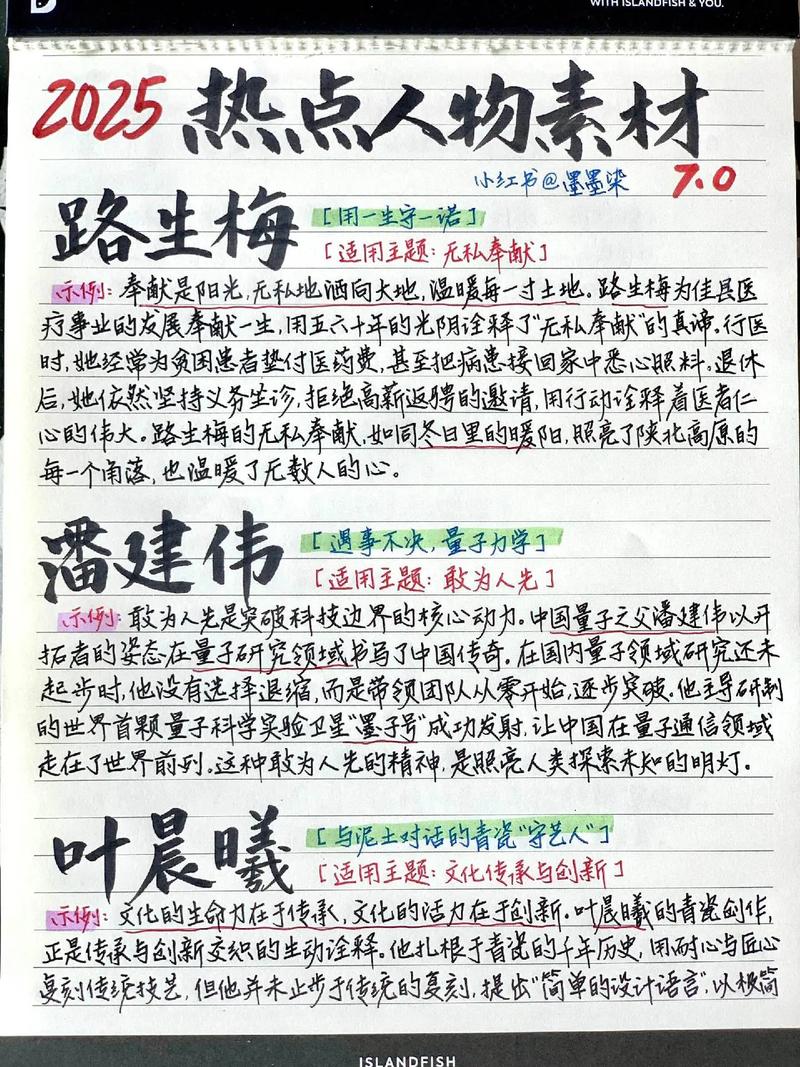 WITH ISLANDFISH & YOU.
2025 热点人物素材
小红书@墨墨染 7.0
路生梅 [用一生守一诺]
[适用主题:无私奉献]
示例:奉献是阳光,无私地洒向大地,温暖每一寸土地。路生梅为佳县医
疗事业的发展奉献一生,用五六十年的光阴诠释了“无私奉献”的真谛。行医
时,她经常为贫困患者垫付医药费,甚至把病患接回家中悉心照料。退休
后,她依然坚持义务坐诊,拒绝高薪返聘的邀请,用行动诠释着医者仁
心的伟大。路生梅的无私奉献,如同冬日里的暖阳,照亮了陕北高原的
每一个角落,也温暖了无数人的心。
潘建伟 [遇事不决,量子力学]
[适用主题:敢为人先]
示例:敢为人先是突破科技边界的核心动力。中国量子之父潘建伟以开
拓者的姿态在量子研究领域书写了中国传奇。在国内量子领域研究还未
起步时,他没有选择退缩,而是带领团队从零开始,逐步突破。他主导研制
的世界首颗量子科学实验卫星“墨子号”成功发射,让中国在量子通信领域
走在了世界前列。这种敢为人先的精神,是照亮人类探索未知的明灯。
叶晨曦 [与泥土对话的青瓷“守艺人”]
[适用主题:文化传承与创新]
示例:文化的生命力在于传承,文化的活力在于创新。叶晨曦的青瓷创作,
正是传承与创新交织的生动诠释。他扎根于青瓷的千年历史,用耐心与匠心
复刻传统技艺,但他并未止步于传统的复刻,提出“简单的设计语言”,以极简
ISLANDFISH